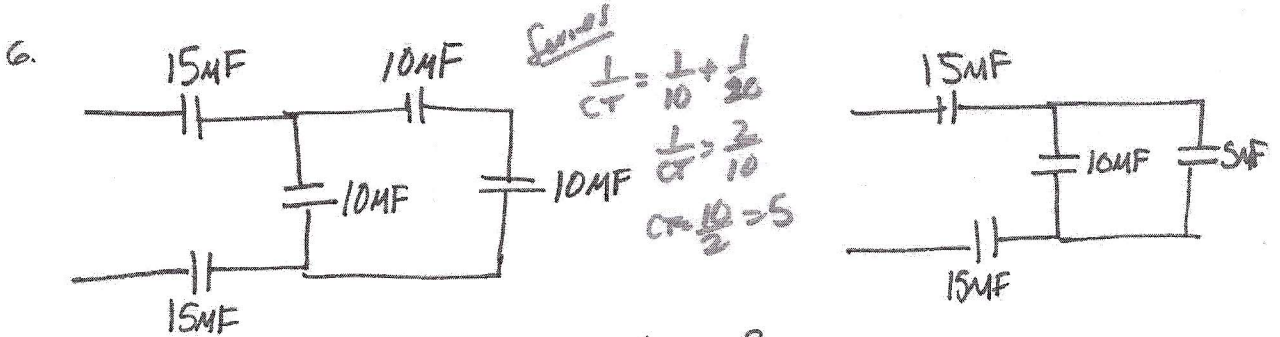 6.
15µF
10µF
10µF
10µF
15µF
Series
1/CT = 1/10 + 1/20
1/CT = 2/10
CT = 10/2 = 5
15µF
10µF
5µF
15µF